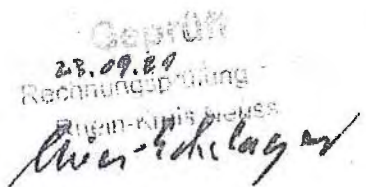 Geprüft
23.09.21
Rechnungsprüfung
Rhein-Kreis Neuss